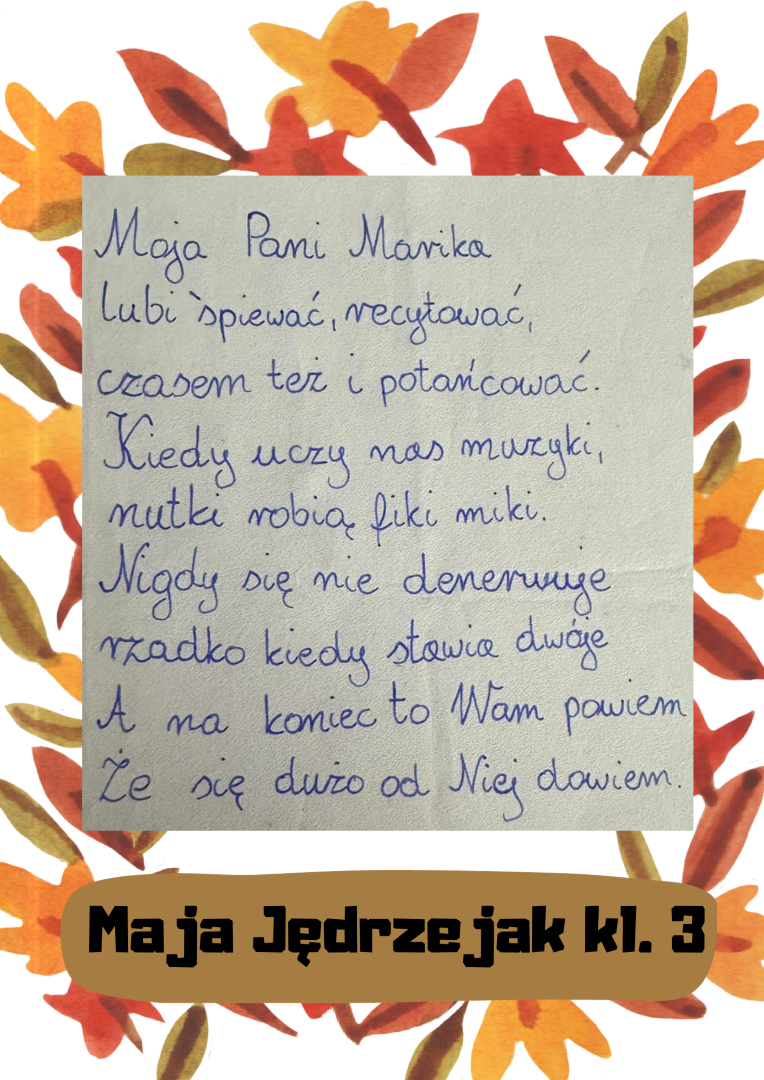 Moja Pani Marika
lubi śpiewać, recytować,
czasem też i potańcować.
Kiedy uczy nas muzyki,
nutki robią fiki miki.
Nigdy się nie denerwuje
rzadko kiedy stawia dwóje
A na koniec to Wam powiem
Że się dużo od Niej dowiem.
Maja Jędrzejak kl. 3